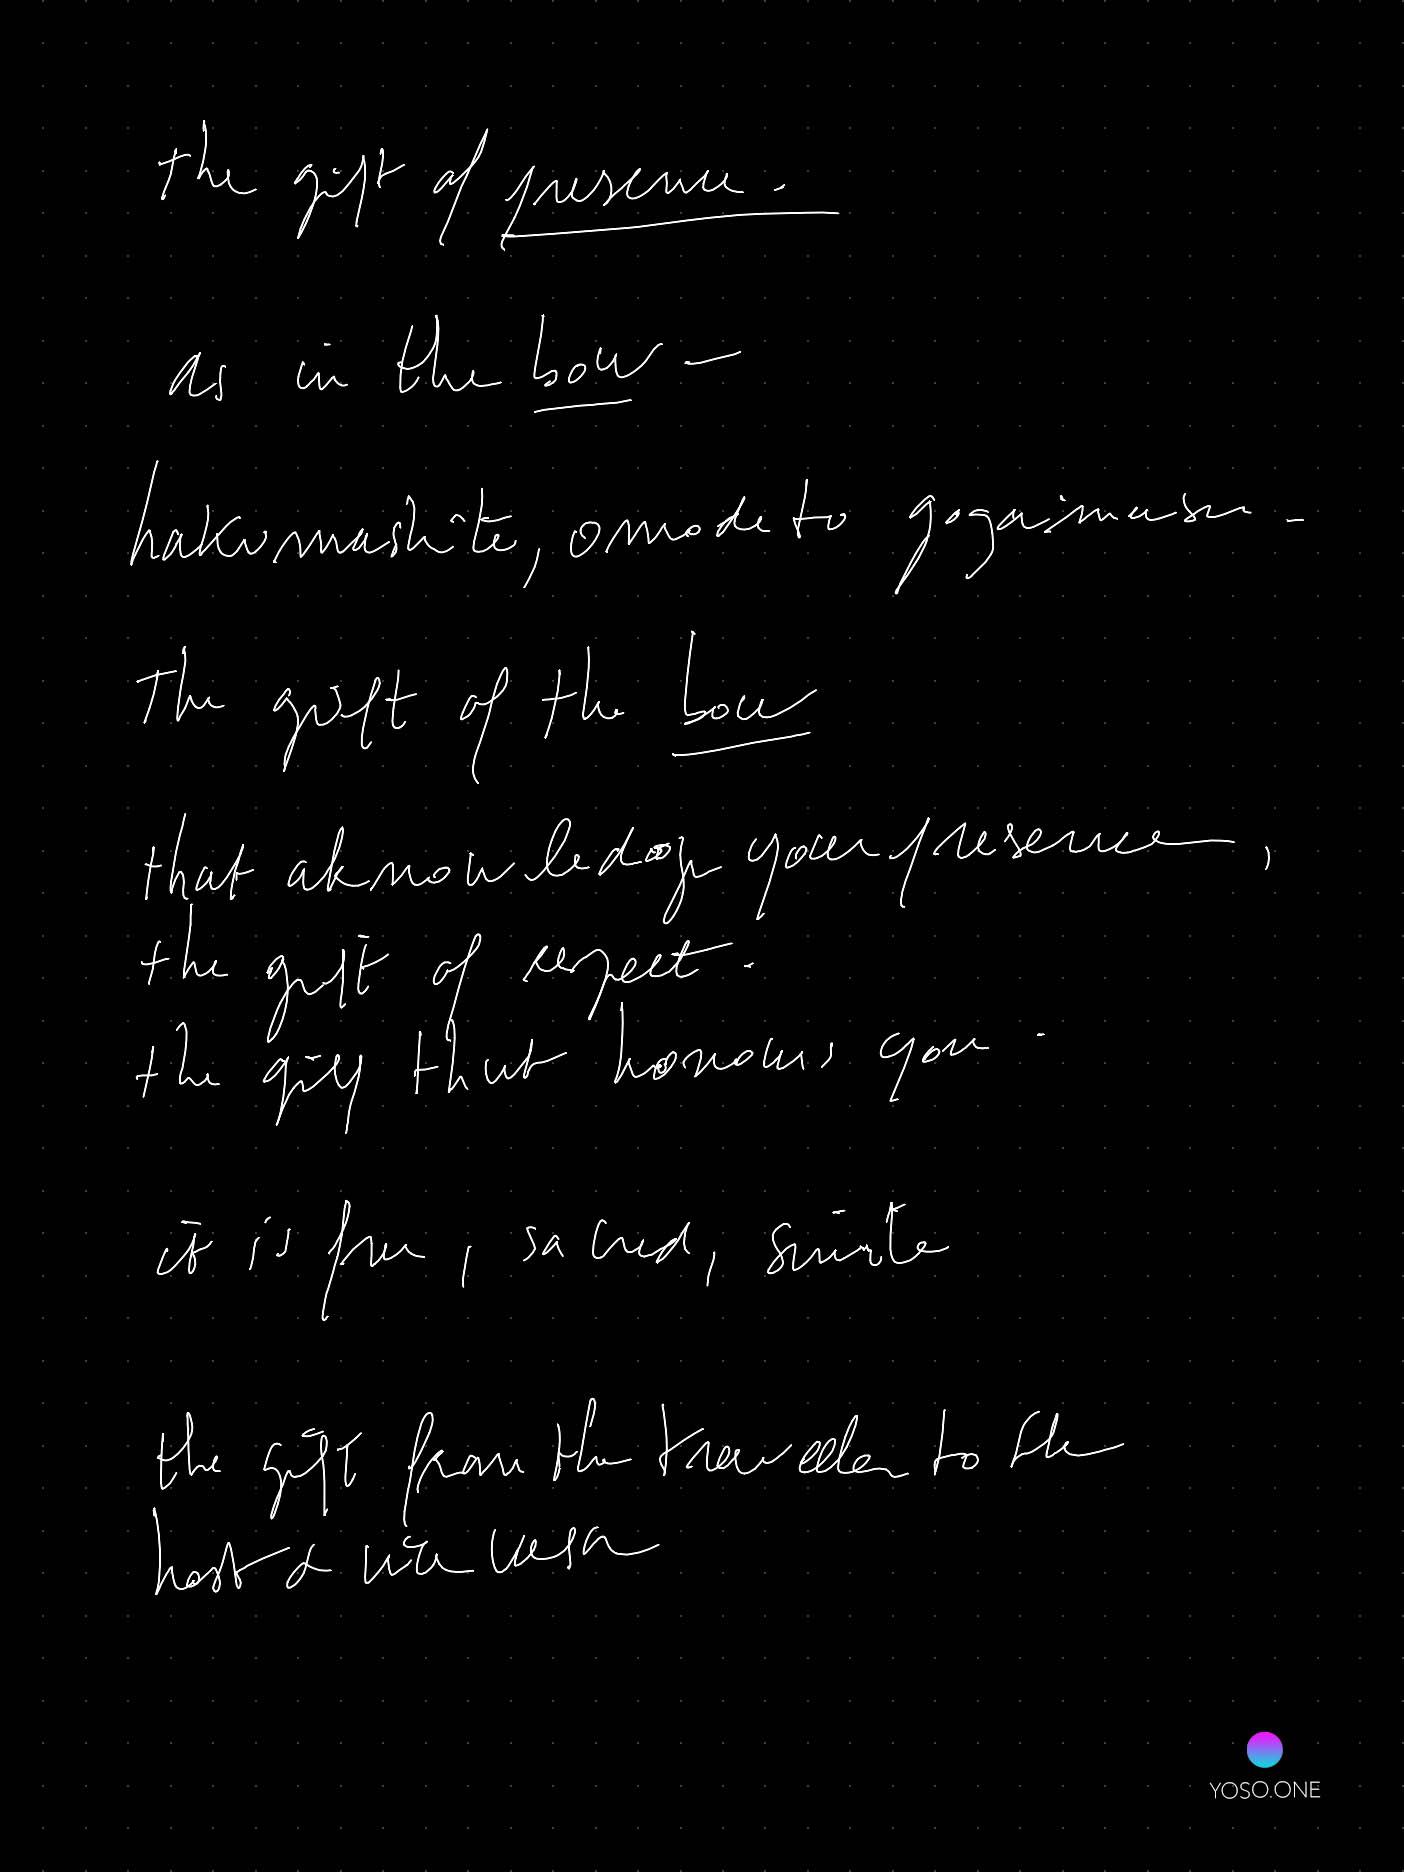 the gift of presence.
as in the bow -
hakumashite, omodeto gogaimasu -
The gift of the bow
that aknowledge your presence,
the gift of respect.
the gift that honours you.
it is free, sacred,
the gift from the traveeler to the
host & vice versa
YOSO.ONE